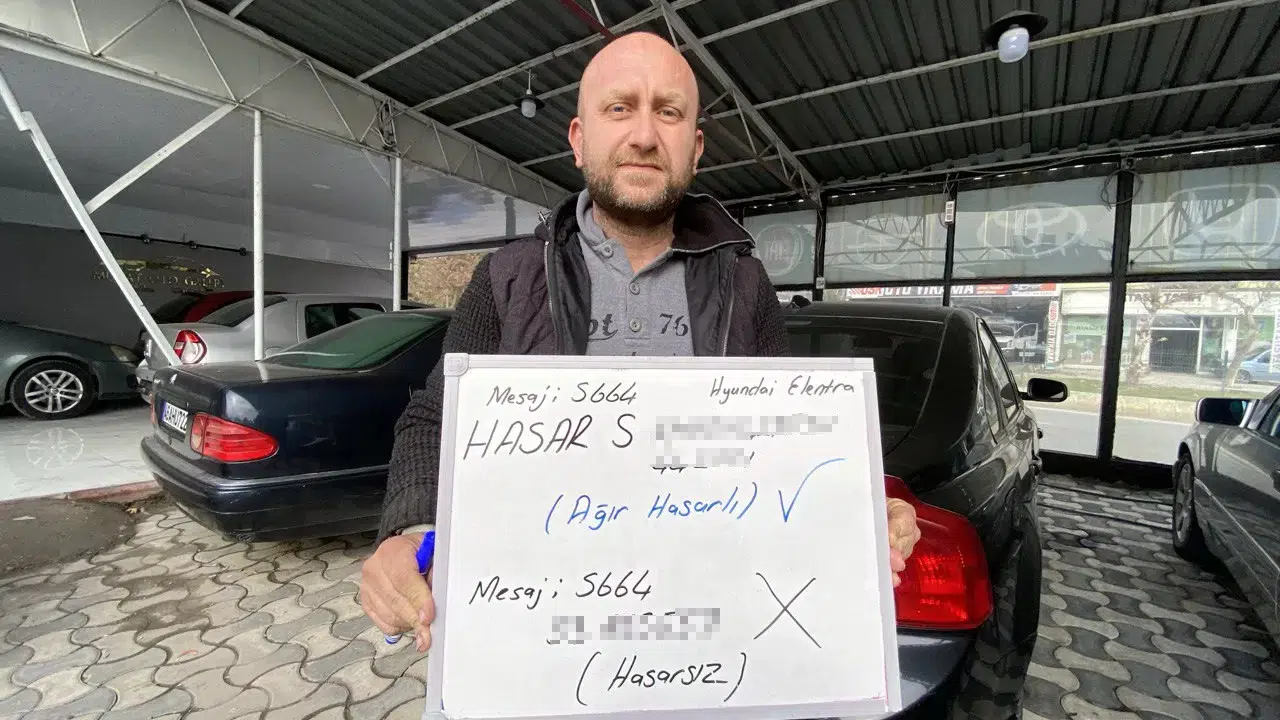 Mesaj: S664 Hyundai Elentra
HASAR S
(Ağır Hasarlı) ✓
Mesaj: S664 X
(Hasarsız)
76
OTO YIKAMA